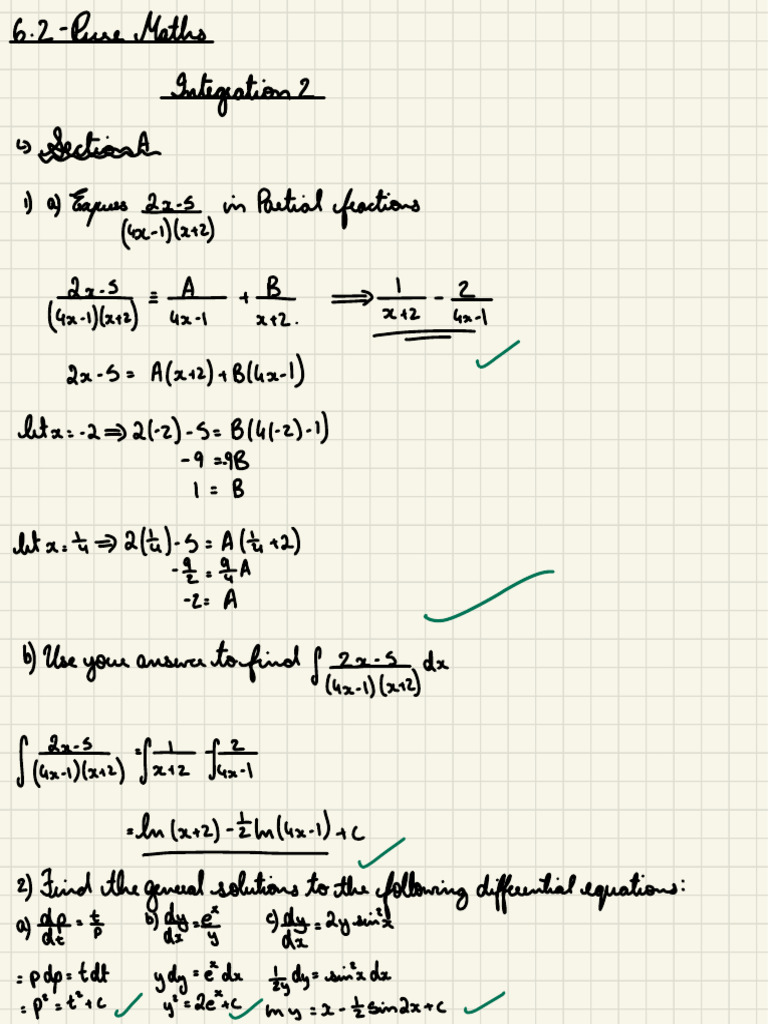 6.2 - Pure Maths
Integration 2
↳ Section A
1) a) Express (2x-5)/((4x-1)(x+2)) in Partial fractions
(2x-5)/((4x-1)(x+2)) ≡ A/(4x-1) + B/(x+2). ⟹ 1/(x+2) - 2/(4x-1)
2x-5 = A(x+2)+B(4x-1)
let x = -2 ⇒ 2(-2)-5 = B(4(-2)-1)
-9 = -9B
1 = B
let x = 1/4 ⇒ 2(1/4)-5 = A(1/4+2)
-9/2 = 9/4 A
-2 = A
b) Use your answer to find ∫ (2x-5)/((4x-1)(x+2)) dx
∫ (2x-5)/((4x-1)(x+2)) = ∫ 1/(x+2) - ∫ 2/(4x-1)
= ln(x+2) - 1/2 ln(4x-1) + c
2) Find the general solutions to the following differential equations:
a) dp/dt = t/p b) dy/dx = e^x/y c) dy/dx = 2y sin²x
= p dp = t dt y dy = e^x dx 1/2y dy = sin²x dx
= p² = t² + c y² = 2e^x + c ln y = x - 1/2 sin2x + c